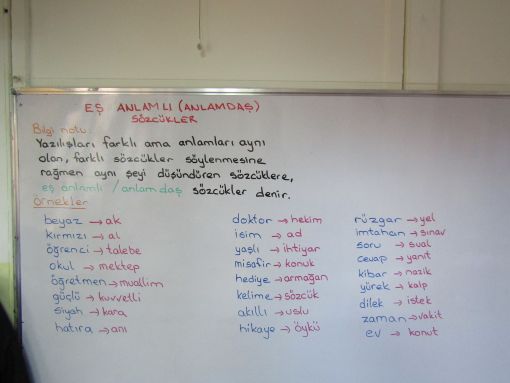 EŞ ANLAMLI (ANLAMDAŞ)
SÖZCÜKLER
Bilgi notu:
Yazılışları farklı ama anlamları aynı
olan, farklı sözcükler söylenmesine
rağmen aynı şeyi düşündüren sözcüklere,
eş anlamlı / anlamdaş sözcükler denir.
Örnekler
beyaz → ak
kırmızı → al
öğrenci → talebe
okul → mektep
öğretmen → muallim
güçlü → kuvvetli
siyah → kara
hatıra → anı
doktor → hekim
isim → ad
yaşlı → ihtiyar
misafir → konuk
hediye → armağan
kelime → sözcük
akıllı → uslu
hikaye → öykü
rüzgar → yel
imtahan → sınav
soru → sual
cevap → yanıt
kibar → nazik
yürek → kalp
dilek → istek
zaman → vakit
ev → konut